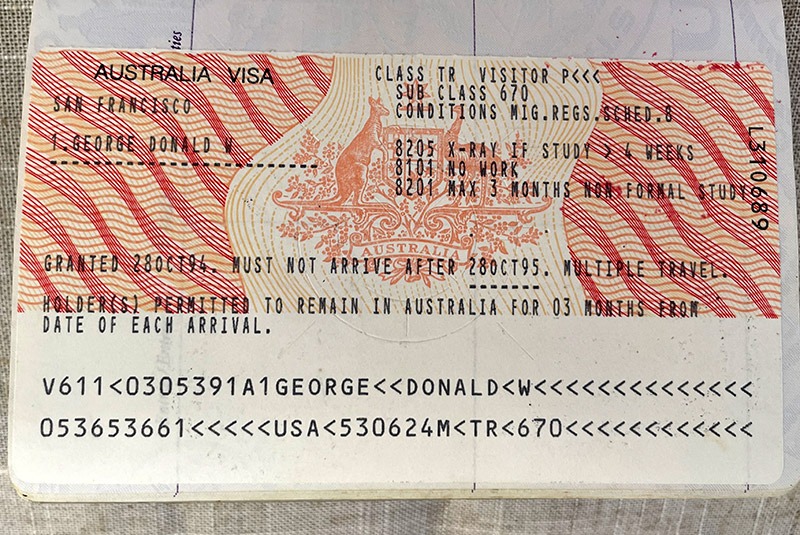 ties
AUSTRALIA VISA
SAN FRANCISCO
1.GEORGE DONALD W
CLASS TR VISITOR P<<<
SUB CLASS 670
CONDITIONS MIG.REGS.SCHED.8
8205 X-RAY IF STUDY > 4 WEEKS
8101 NO WORK
8201 MAX 3 MONTHS NON-FORMAL STUDY
L310689
AUSTRALIA
GRANTED 28OCT94. MUST NOT ARRIVE AFTER 28OCT95. MULTIPLE TRAVEL.
HOLDER(S) PERMITTED TO REMAIN IN AUSTRALIA FOR 03 MONTHS FROM
DATE OF EACH ARRIVAL.
V611<0305391A1GEORGE<<DONALD<W<<<<<<<<<<<<<<<
053653661<<<<<USA<530624M<TR<670<<<<<<<<<<<<<